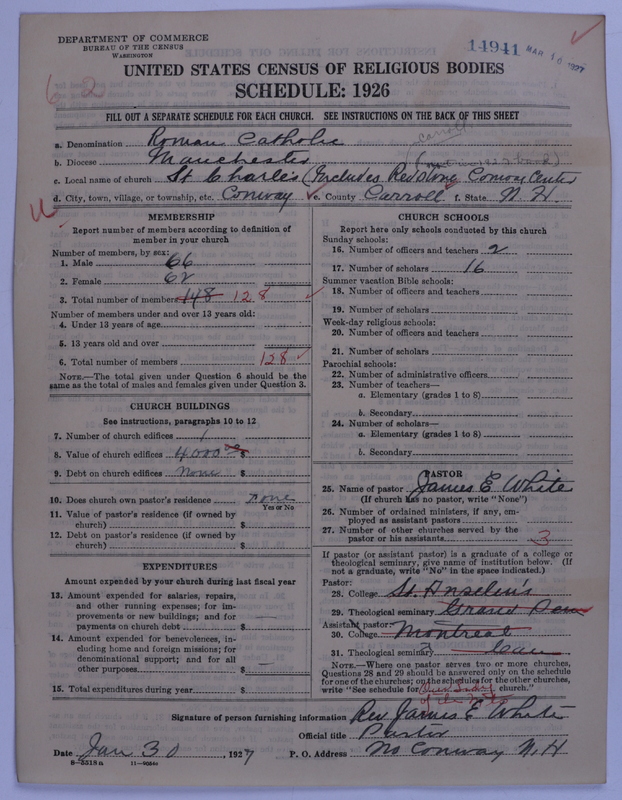 DEPARTMENT OF COMMERCE
BUREAU OF THE CENSUS
WASHINGTON
14941 MAR 16 1927
62
UNITED STATES CENSUS OF RELIGIOUS BODIES
SCHEDULE: 1926
FILL OUT A SEPARATE SCHEDULE FOR EACH CHURCH. SEE INSTRUCTIONS ON THE BACK OF THIS SHEET
Carroll
a. Denomination Roman Catholic
b. Diocese Manchester
c. Local name of church St Charles (Includes Redstone Conway Center
d. City, town, village, or township, etc. Conway e. County Carroll f. State N. H.
MEMBERSHIP
Report number of members according to definition of member in your church
Number of members, by sex:
1. Male 66
2. Female 62
3. Total number of members 148 128
Number of members under and over 13 years old:
4. Under 13 years of age
5. 13 years old and over
6. Total number of members 128
NOTE.—The total given under Question 6 should be the
same as the total of males and females given under Question 3.
CHURCH BUILDINGS
See instructions, paragraphs 10 to 12
7. Number of church edifices 1
8. Value of church edifices 4000 $
9. Debt on church edifices None $
10. Does church own pastor's residence none
Yes or No
11. Value of pastor's residence (if owned by
church) $
12. Debt on pastor's residence (if owned by
church) $
EXPENDITURES
Amount expended by your church during last fiscal year
13. Amount expended for salaries, repairs,
and other running expenses; for im-
provements or new buildings; and for
payments on church debt $ —
14. Amount expended for benevolences, in-
cluding home and foreign missions; for
denominational support; and for all
other purposes $ —
15. Total expenditures during year $
CHURCH SCHOOLS
Report here only schools conducted by this church
Sunday schools:
16. Number of officers and teachers 2
17. Number of scholars 16
Summer vacation Bible schools:
18. Number of officers and teachers
19. Number of scholars
Week-day religious schools:
20. Number of officers and teachers
21. Number of scholars
Parochial schools:
22. Number of administrative officers
23. Number of teachers—
a. Elementary (grades 1 to 8)
b. Secondary
24. Number of scholars—
a. Elementary (grades 1 to 8)
b. Secondary
PASTOR
25. Name of pastor James E White
(If church has no pastor, write "None")
26. Number of ordained ministers, if any, em-
ployed as assistant pastors
27. Number of other churches served by the
pastor or his assistants 3
If pastor (or assistant pastor) is a graduate of a college or
theological seminary, give name of institution below. (If
not a graduate, write "No" in the space indicated.)
Pastor:
28. College St. Anselm's
29. Theological seminary Grand Sem
Assistant pastor:
30. College Montreal
31. Theological seminary
NOTE.—Where one pastor serves two or more churches,
Questions 28 and 29 should be answered only on the schedule
for one of the churches; on the schedules for the other churches,
write "See schedule for Our Lady church."
of the Mts
Signature of person furnishing information Rev James E White
Official title Pastor
Date Jan 30, 1927 P. O. Address No Conway N. H
8—5518 a 11—9066